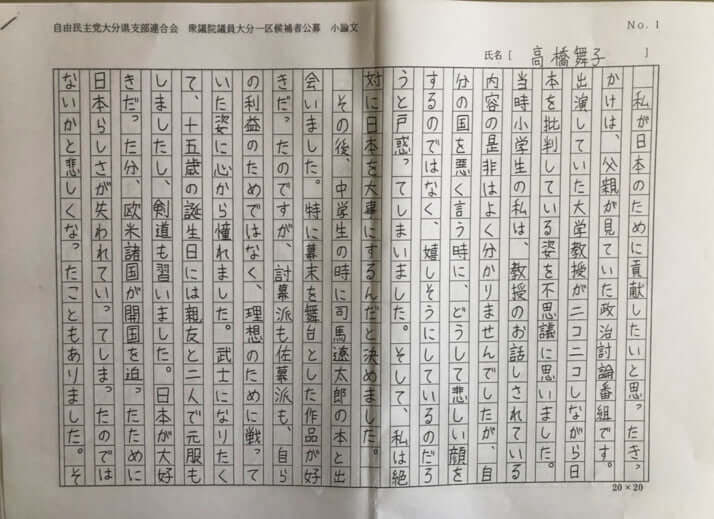 自由民主党大分県支部連合会　衆議院議員大分一区候補者公募　小論文
No. 1
氏名［　高橋舞子　］
　私が日本のために貢献したいと思ったきっ
かけは、父親が見ていた政治討論番組です。
出演していた大学教授がニコニコしながら日
本を批判している姿を不思議に思いました。
当時小学生の私は、教授のお話しされている
内容の是非はよく分かりませんでしたが、自
分の国を悪く言う時に、どうして悲しい顔を
するのではなく、嬉しそうにしているのだろ
うと戸惑ってしまいました。そして、私は絶
対に日本を大事にするんだと決めました。
　その後、中学生の時に司馬遼太郎の本と出
会いました。特に幕末を舞台とした作品が好
きだったのですが、討幕派も佐幕派も、自ら
の利益のためではなく、理想のために戦って
いた姿に心から憧れました。武士になりたく
て、十五歳の誕生日には親友と二人で元服も
しましたし、剣道も習いました。日本が大好
きだった分、欧米諸国が開国を迫ったために
日本らしさが失われていってしまったのでは
ないかと悲しくなったこともありました。そ
20×20